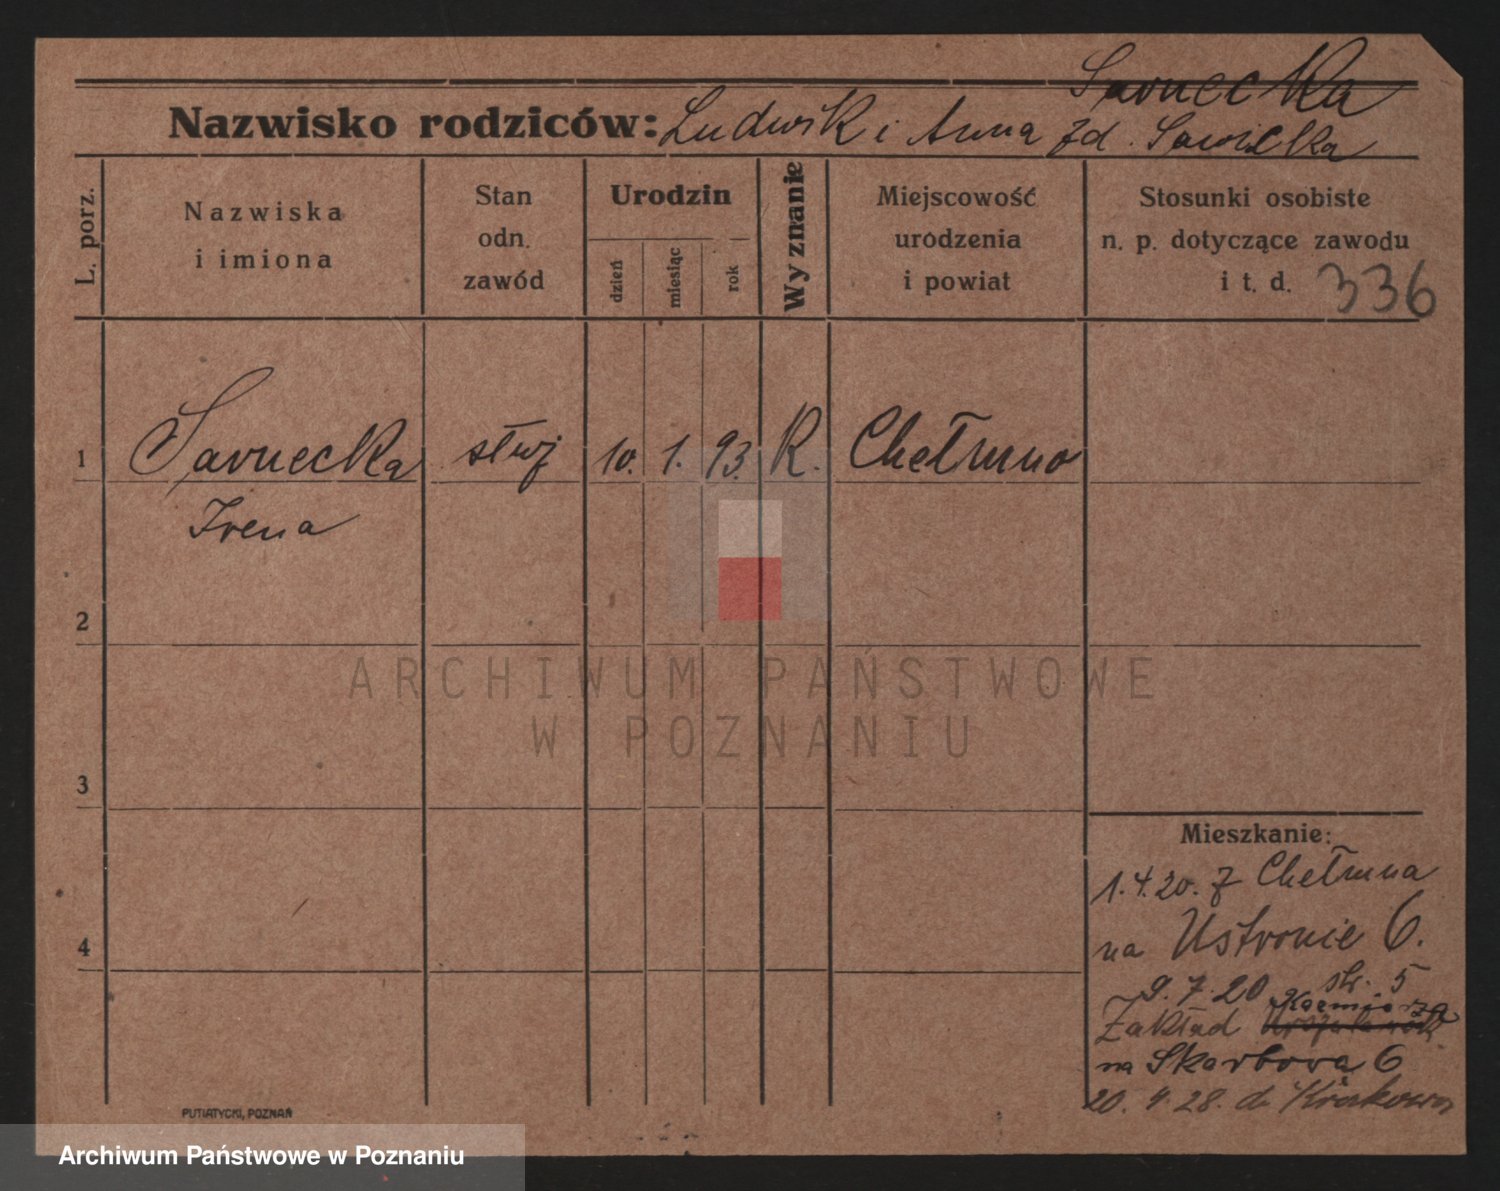 Sarnecka
Nazwisko rodziców: Ludwik i Anna zd. Sawicka
L. porz.
Nazwiska
i imiona
Stan
odn.
zawód
Urodzin
dzień
miesiąc
rok
Wyznanie
Miejscowość
urodzenia
i powiat
Stosunki osobiste
n. p. dotyczące zawodu
i t. d. 336
1 Sarnecka służ 10. 1. 93. R. Chełmno
Irena
2
3
4
Mieszkanie:
1.4.20. z Chełmna
na Ustronie 6.
9.7.20 str. 5
Kaźmierza
Zakład
na Skarbowa 6
20. 4. 28. do Krakowa
PUTIATYCKI, POZNAŃ
ARCHIWUM PAŃSTWOWE
W POZNANIU
Archiwum Państwowe w Poznaniu